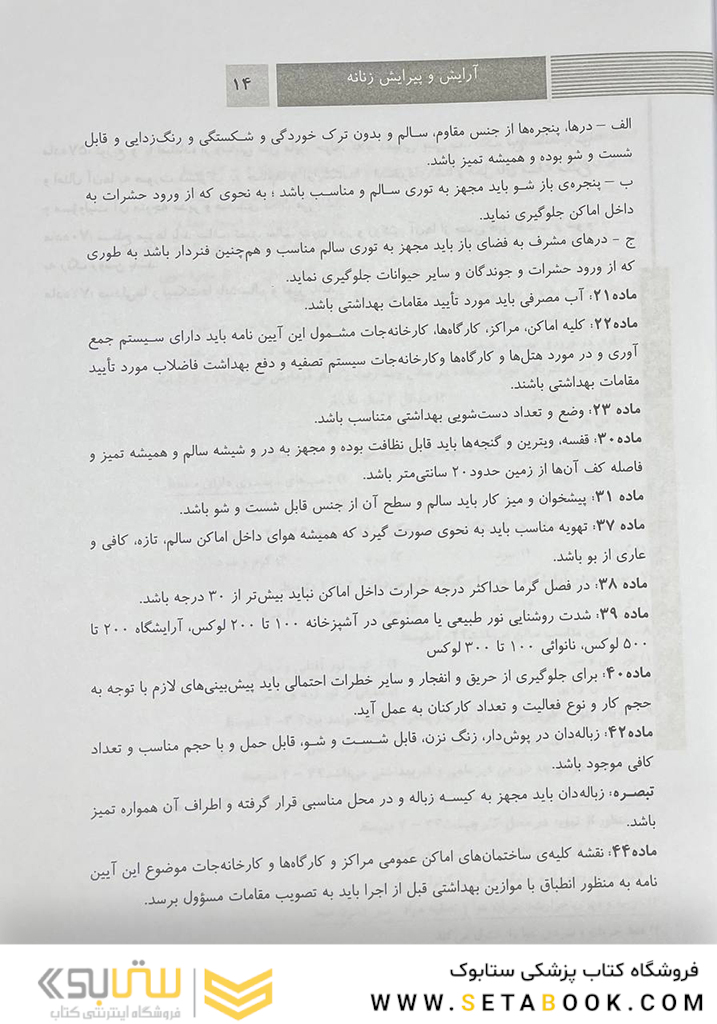 آرایش و پیرایش زنانه
۱۴
الف – درها، پنجره‌ها از جنس مقاوم، سالم و بدون ترک خوردگی و شکستگی و رنگ‌زدایی و قابل
شست و شو بوده و همیشه تمیز باشد.
ب – پنجره‌ی باز شو باید مجهز به توری سالم و مناسب باشد ؛ به نحوی که از ورود حشرات به
داخل اماکن جلوگیری نماید.
ج – درهای مشرف به فضای باز باید مجهز به توری سالم مناسب و هم‌چنین فنردار باشد به طوری
که از ورود حشرات و جوندگان و سایر حیوانات جلوگیری نماید.
ماده۲۱: آب مصرفی باید مورد تأیید مقامات بهداشتی باشد.
ماده۲۲: کلیه اماکن، مراکز، کارگاه‌ها، کارخانه‌جات مشمول این آیین نامه باید دارای سیستم جمع
آوری و در مورد هتل‌ها و کارگاه‌ها وکارخانه‌جات سیستم تصفیه و دفع بهداشت فاضلاب مورد تأیید
مقامات بهداشتی باشند.
ماده ۲۳: وضع و تعداد دست‌شویی بهداشتی متناسب باشد.
ماده۳۰: قفسه، ویترین و گنجه‌ها باید قابل نظافت بوده و مجهز به در و شیشه سالم و همیشه تمیز و
فاصله کف آن‌ها از زمین حدود۲۰ سانتی‌متر باشد.
ماده ۳۱: پیشخوان و میز کار باید سالم و سطح آن از جنس قابل شست و شو باشد.
ماده ۳۷: تهویه مناسب باید به نحوی صورت گیرد که همیشه هوای داخل اماکن سالم، تازه، کافی و
عاری از بو باشد.
ماده ۳۸: در فصل گرما حداکثر درجه حرارت داخل اماکن نباید بیش‌تر از ۳۰ درجه باشد.
ماده ۳۹: شدت روشنایی نور طبیعی یا مصنوعی در آشپزخانه ۱۰۰ تا ۲۰۰ لوکس، آرایشگاه ۲۰۰ تا
۵۰۰ لوکس، نانوائی ۱۰۰ تا ۳۰۰ لوکس
ماده۴۰: برای جلوگیری از حریق و انفجار و سایر خطرات احتمالی باید پیش‌بینی‌های لازم با توجه به
حجم کار و نوع فعالیت و تعداد کارکنان به عمل آید.
ماده۴۲: زباله‌دان در پوش‌دار، زنگ نزن، قابل شست و شو، قابل حمل و با حجم مناسب و تعداد
کافی موجود باشد.
تبصره: زباله‌دان باید مجهز به کیسه زباله و در محل مناسبی قرار گرفته و اطراف آن همواره تمیز
باشد.
ماده۴۴: نقشه کلیه‌ی ساختمان‌های اماکن عمومی مراکز و کارگاه‌ها و کارخانه‌جات موضوع این آیین
نامه به منظور انطباق با موازین بهداشتی قبل از اجرا باید به تصویب مقامات مسؤول برسد.
فروشگاه کتاب پزشکی ستابوک
WWW.SETABOOK.COM
ستابوک
فروشگاه اینترنتی کتاب